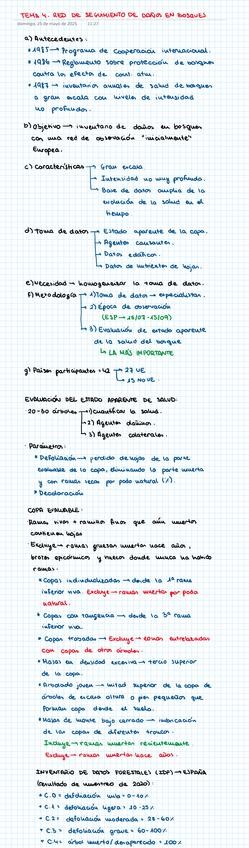 TEMA 4. RED DE SEGUIMIENTO DE DAÑOS EN BOSQUES
domingo, 25 de mayo de 2025 11:27
a) Antecedentes:
• 1985 → Programa de Cooperación internacional.
• 1986 → Reglamento sobre protección de bosques
contra los efectos de cont. atm.
• 1987 → inventarios anuales de salud de bosques
a gran escala con niveles de intensidad
no profundos.
b) Objetivo → inventario de daños en bosques
con una red de observación "inicialmente"
Europea.
c) Características → Gran escala
→ Intensidad no muy profundo.
→ Base de datos amplia de la
evolución de la salud en el
tiempo
d) Toma de datos → Estado aparente de la copa.
→ Agentes causantes.
→ Datos edáficos.
→ Datos de nutrientes de hojas.
e) Necesidad → homogeneizar la toma de datos.
f) Metodología → 1) Toma de datos → especialistas.
→ 2) Época de observación
(ESP → 15/07-15/09)
→ 3) Evaluación de estado aparente
de la salud del bosque
↳ LA MÁS IMPORTANTE
g) Países participantes = 42 → 27 UE
→ 15 NO UE.
EVALUACIÓN DEL ESTADO APARENTE DE SALUD:
20-30 árboles → 1) Cuantificar la salud.
→ 2) Agentes dañinos.
→ 3) Agentes colaterales.
· Parámetros:
* Defoliación → pérdida de hojas de la parte
evaluable de la copa, eliminando la parte muerta
y con ramas secas por poda natural (%).
* Decoloración
COPA EVALUABLE:
Ramas vivas + ramillos finos que aún muertos
contienen hojas
Excluye → ramas gruesas muertas hace años,
brotes epicórmicos y huecos donde nunca ha habido
ramas.
* Copas individualizadas → desde la 1ª rama
inferior viva. Excluye → ramas muertas por poda
natural.
* Copas con tangencia → desde la 3ª rama
inferior viva.
* Copas trabadas → Excluye → zonas entrelazadas
con copas de otros árboles.
* Masas en densidad excesiva → tercio superior
de la copa.
* Arbolado joven → mitad superior de la copa de
árboles de escasa altura o pies pequeños que
forman copa desde el suelo.
* Masas de monte bajo cerrado → imbricación
de las copas de diferentes troncos.
Incluye → ramas muertas recientemente
Excluye → ramas muertas hace años.
INVENTARIO DE DATOS FORESTALES (IDF) → ESPAÑA
(Resultado de muestreo de 2020):
* C.0 = defoliación nula = 0-10%
* C.1 = defoliación ligera = 10-25%
* C.2 = defoliación moderada = 25-60%
* C.3 = defoliación grave = 60-100%
* C.4 = árbol muerto/desaparecido = 100%